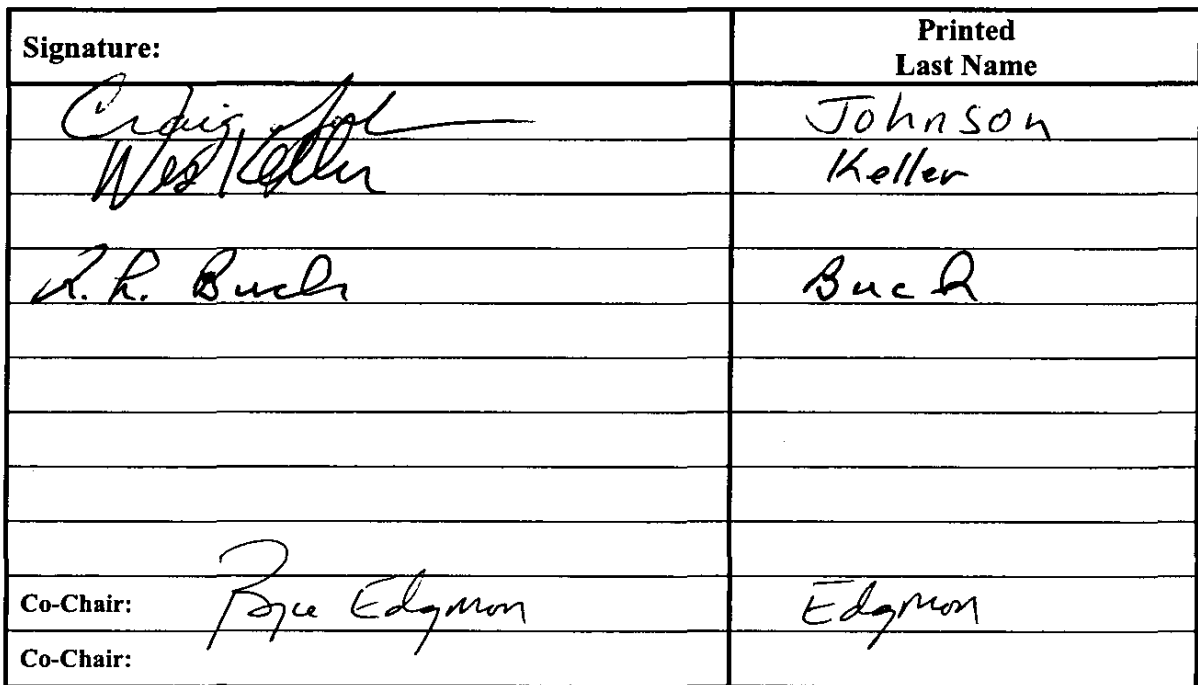 Signature: Printed
Last Name
Craig Joh Johnson
Wes Keller Keller
R. R. Buch Buch
Co-Chair: Bryce Edgmon Edgmon
Co-Chair: